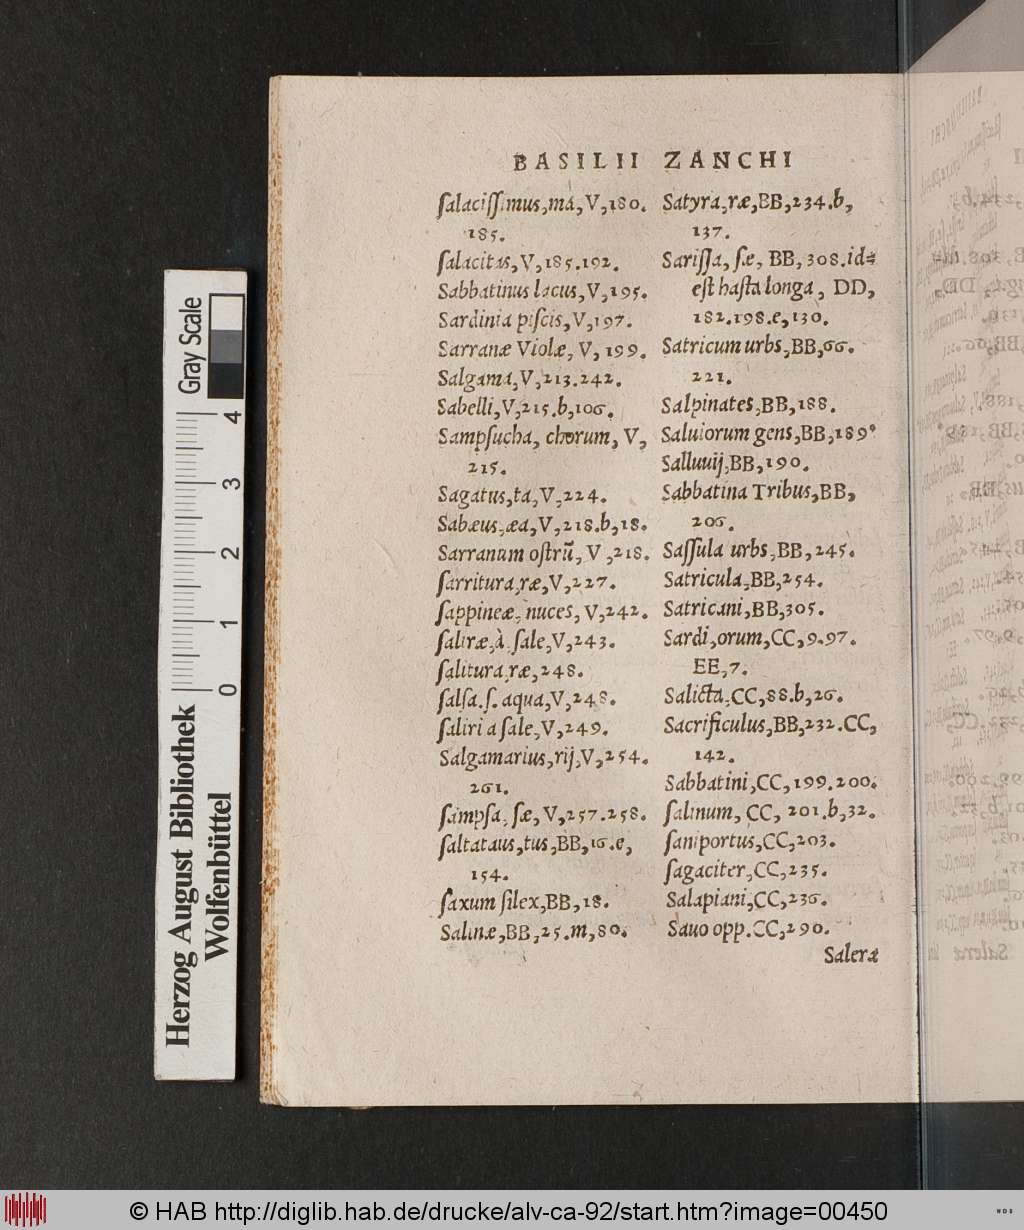 BASILII ZANCHI
ſalaciſſimus,ma,V,180.
185.
ſalacitas,V,185.192.
Sabbatinus lacus,V,195.
Sardinia piſcis,V,197.
Sarranæ Violæ, V, 199.
Salgama,V,213.242.
Sabelli,V,215.b,106.
Sampſucha, chorum, V,
215.
Sagatus,ta,V,224.
Sabæus,æa,V,218.b,18.
Sarranum oſtrũ, V ,218.
ſarritura,ræ,V,227.
ſappineæ, nuces, V,242.
ſaliræ,à, ſale,V,243.
ſalitura,ræ,248.
ſalſa.ſ. aqua,V,248.
ſaliri a ſale,V,249.
Salgamarius,rij,V,254.
261.
ſampſa, ſæ, V,257.258.
ſaltataus,tus,BB,16.e,
154.
ſaxum ſilex,BB,18.
Salinæ,BB,25.m,80.
Satyra,ræ,BB,234.b,
137.
Sariſſa, ſæ, BB, 308.id⸗
eſt haſta longa, DD,
182.198.e,130.
Satricum urbs,BB,66.
221.
Salpinates,BB,188.
Saluiorum gens,BB,189.
Salluuij,BB,190.
Sabbatina Tribus,BB,
206.
Saſſula urbs,BB,245.
Satricula,BB,254.
Satricani,BB,305.
Sardi,orum,CC,9.97.
EE,7.
Salicta,CC,88.b,26.
Sacrificulus,BB,232.CC,
142.
Sabbatini,CC,199.200.
ſalinum, CC, 201.b,32.
ſaniportus,CC,203.
ſagaciter,CC,235.
Salapiani,CC,236.
Sauo opp.CC,290.
Saleræ
Gray Scale
0 1 2 3 4
Herzog August Bibliothek
Wolfenbüttel
© HAB http://diglib.hab.de/drucke/alv-ca-92/start.htm?image=00450
WDB